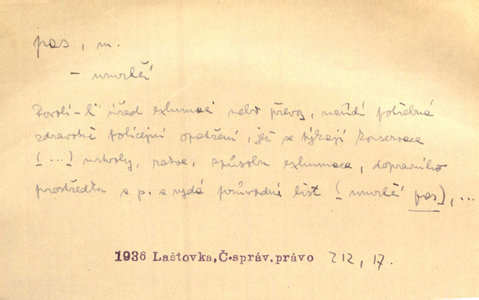 pas, m.
– umrlčí
Povolí-li úřad exhumaci nebo převoz, nařídí potřebná
zdravotně policejní opatření, jež se týkají konservace
(...) mrtvoly, rakve, způsobu exhumace, dopravního
prostředku a p. a vydá průvodní list (umrlčí pas), ...
1936 Laštovka, Č-správ. právo 212, 17.